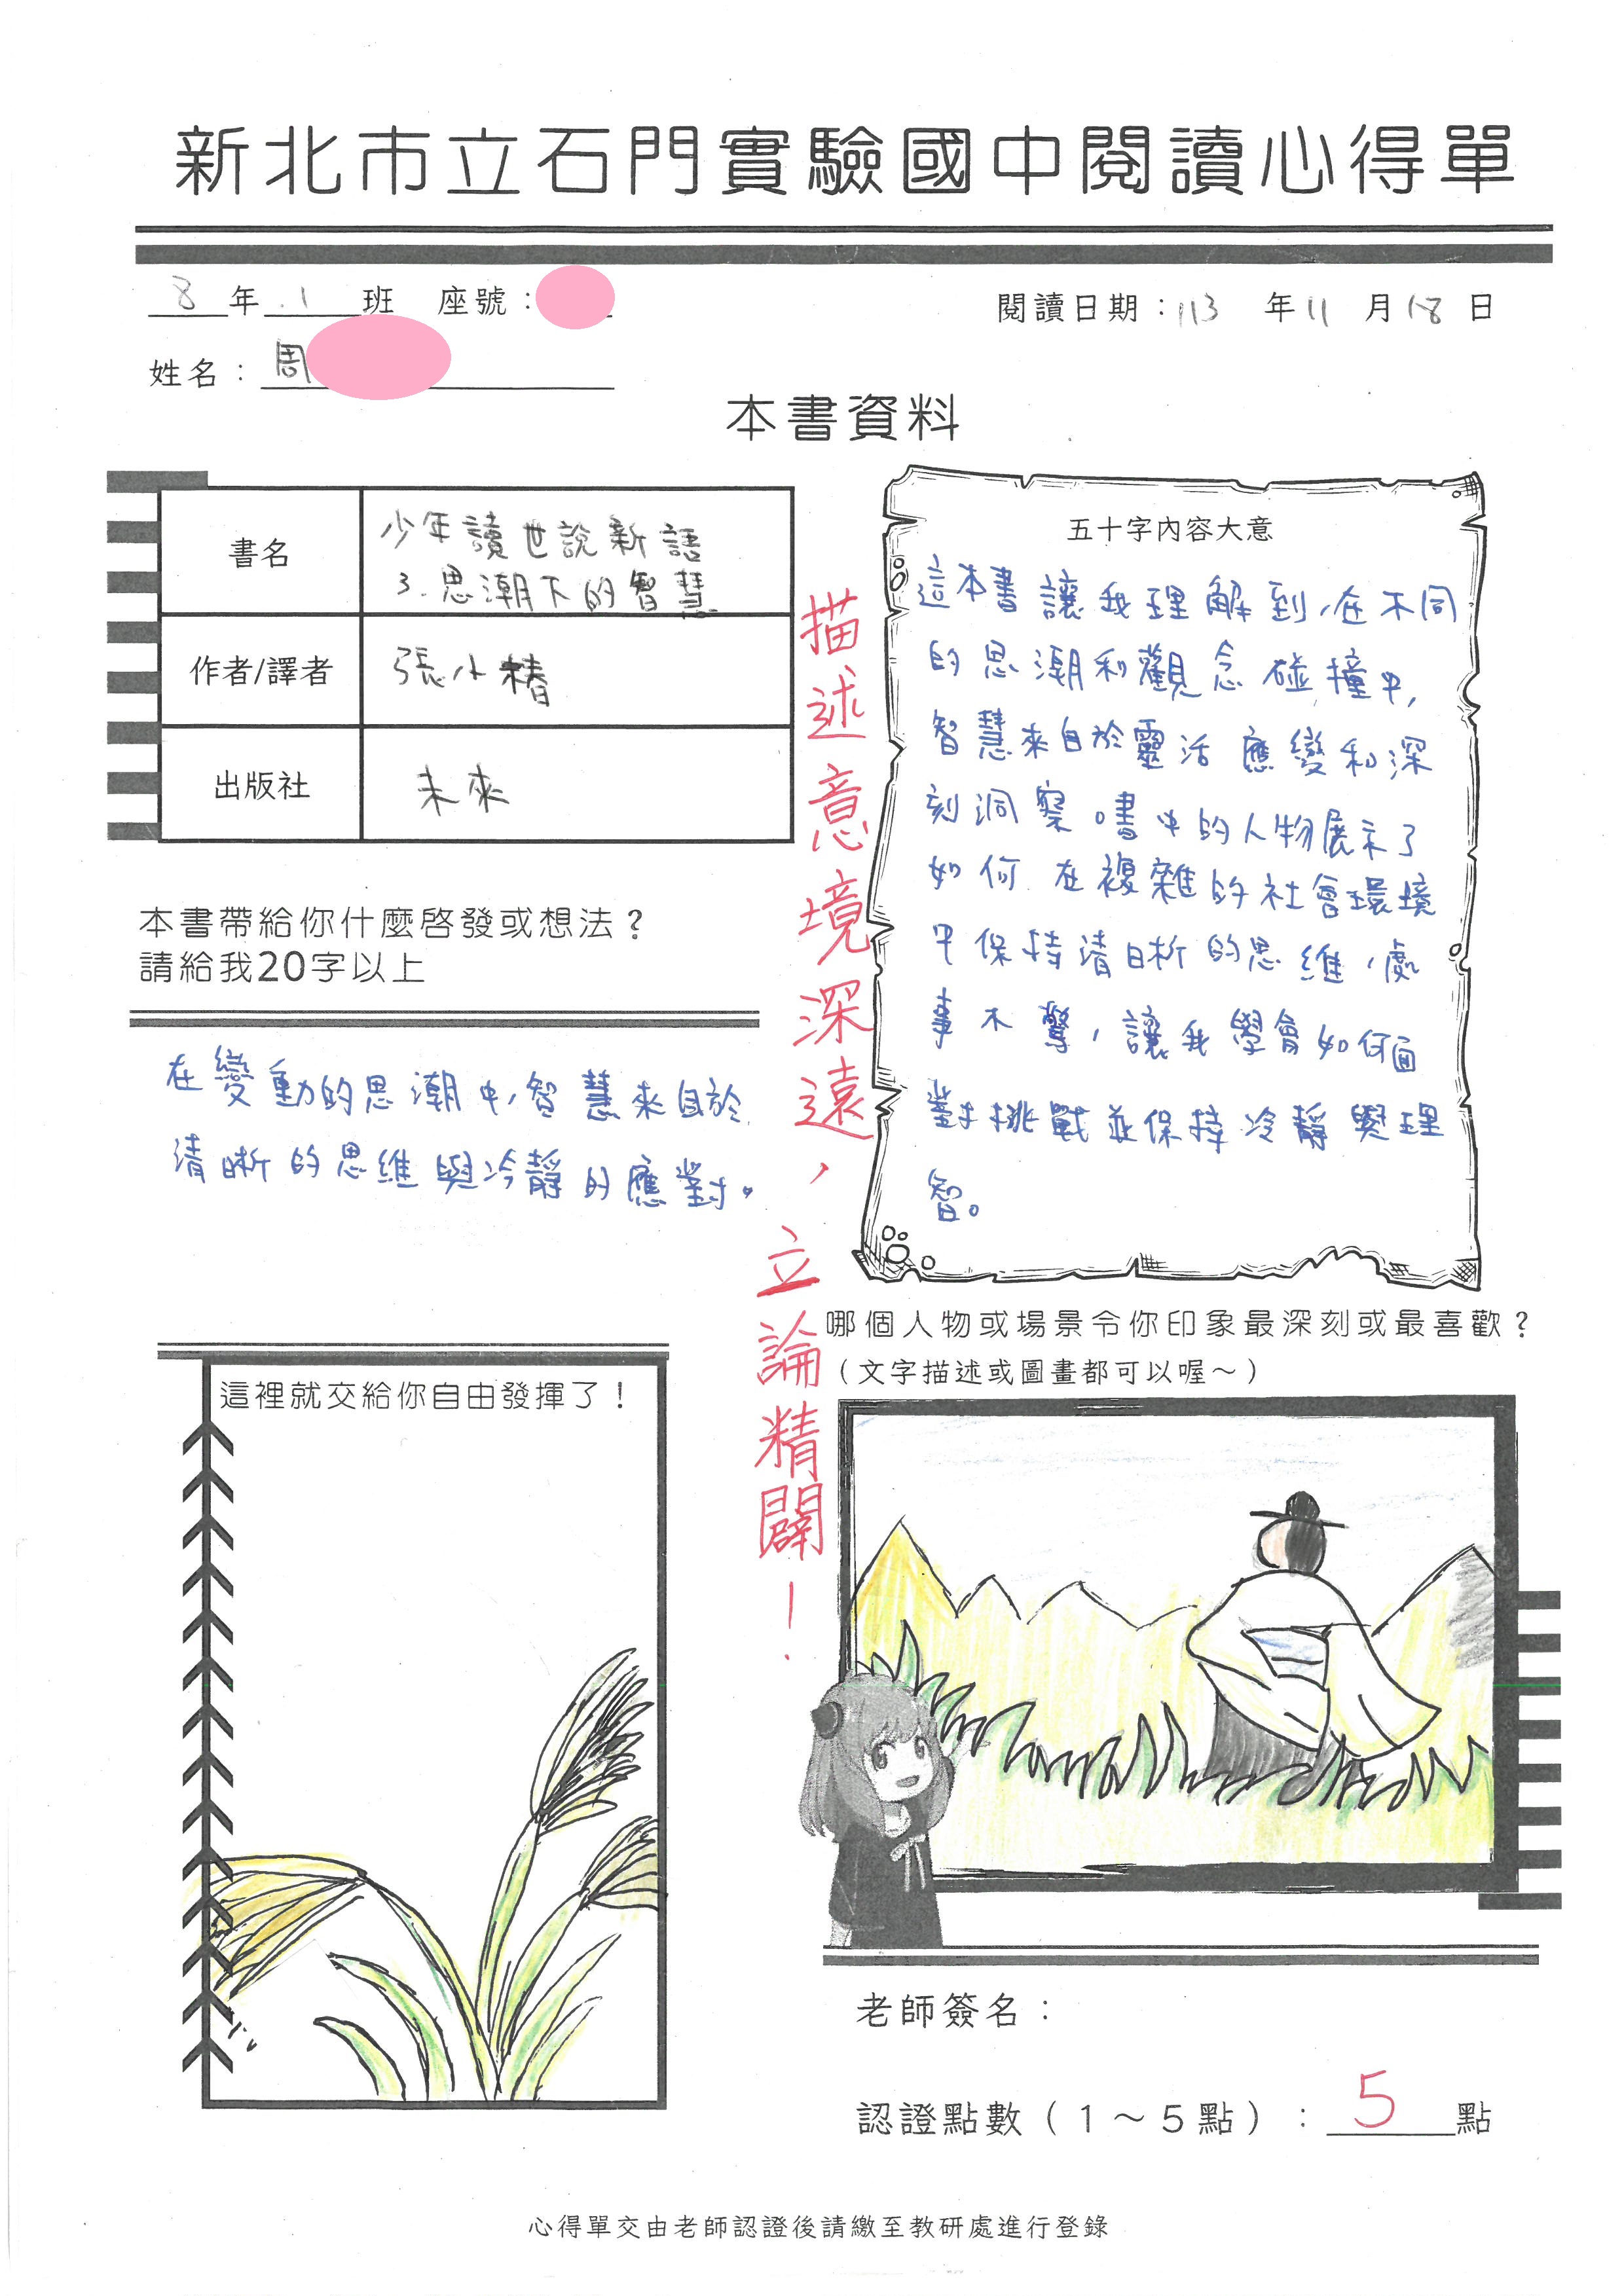 新北市立石門實驗國中閱讀心得單
8年.1班 座號：
閱讀日期：113年11月18日
姓名：周
本書資料
書名
少年讀世說新語
3.思潮下的智慧
作者/譯者
張小椿
出版社
未來
五十字內容大意
這本書讓我理解到,在不同
的思潮和觀念碰撞中,
智慧來自於靈活應變和深
刻洞察。書中的人物展示了
如何在複雜的社會環境
中保持清晰的思維,處
事不驚,讓我學會如何面
對挑戰並保持冷靜與理
智。
本書帶給你什麼啓發或想法？
請給我20字以上
在變動的思潮中,智慧來自於
清晰的思維與冷靜的應對。
描述意境深遠,立論精闢！
哪個人物或場景令你印象最深刻或最喜歡？
（文字描述或圖畫都可以喔～）
這裡就交給你自由發揮了！
老師簽名：
認證點數（1～5點）：5點
心得單交由老師認證後請繳至教研處進行登錄